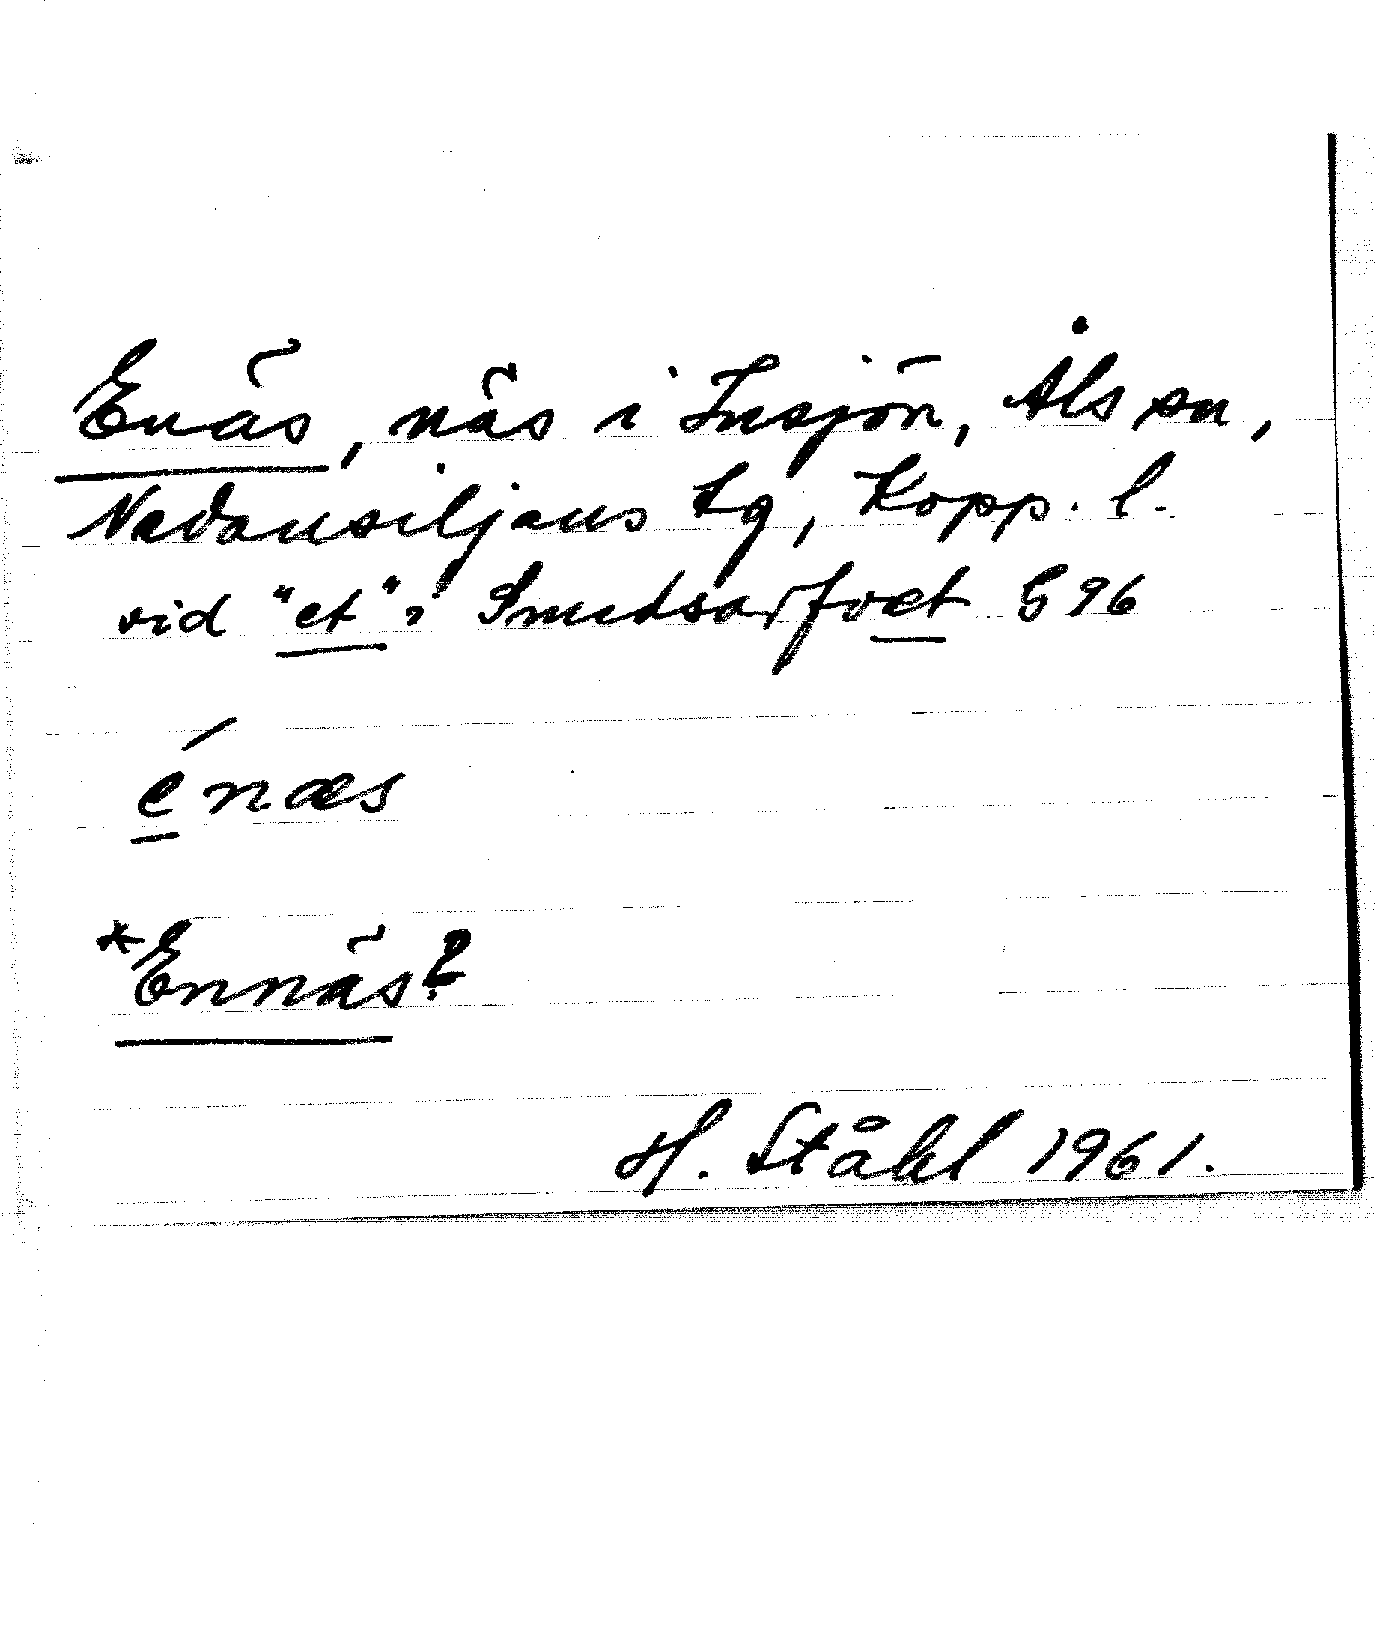 Enäs, näs i Insjön, Åls sn,
Nedansiljans tg, Kopp. l.
vid "et" i Smedsarfvet G 96
énæs
*Ennäs?
H. Ståhl 1961.